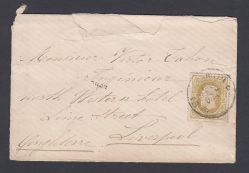 Monsieur Victor
Ingénieur
north Western Hotel
Lime Street
Liverpool
Angleterre